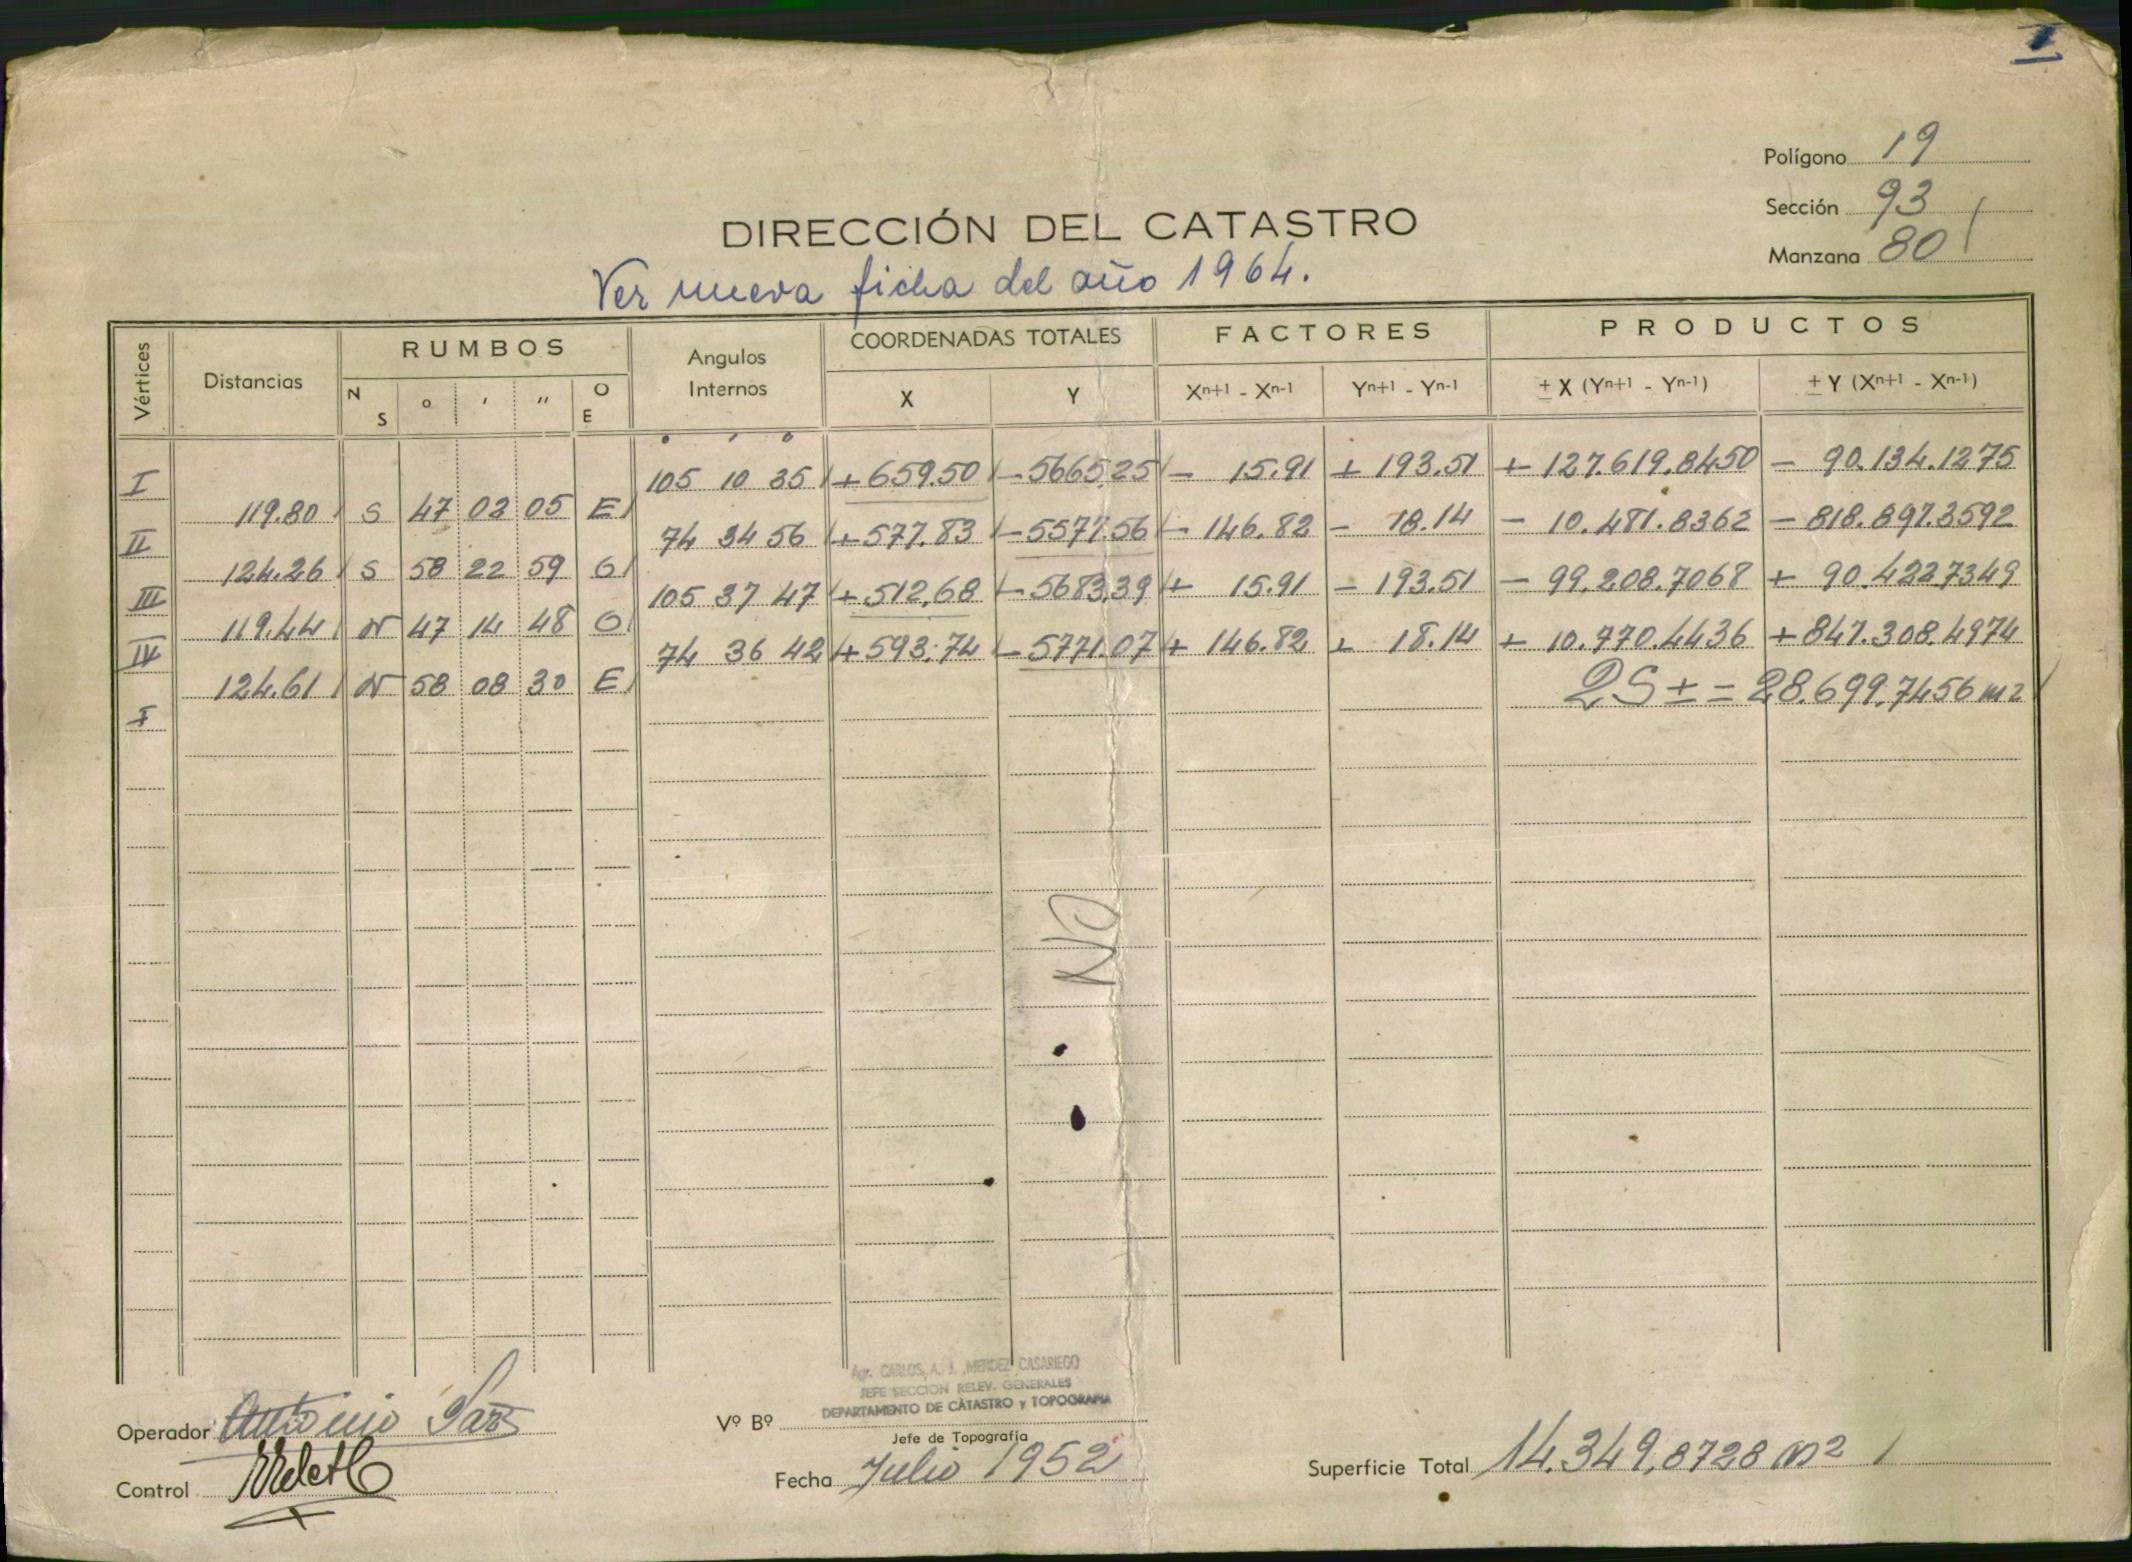 I
Polígono 19
Sección 93
Manzana 80
DIRECCIÓN DEL CATASTRO
Ver nueva ficha del año 1964.
Vértices Distancias RUMBOS Angulos Internos COORDENADAS TOTALES FACTORES PRODUCTOS
N S o ' '' O E X Y Xn+1 - Xn-1 Yn+1 - Yn-1 ± X (Yn+1 - Yn-1) ± Y (Xn+1 - Xn-1)
I 105 10 35 +659.50 -5665.25 - 15.91 + 193.51 + 127.619.8450 - 90.134.1275
119.80 S 47 02 05 E
II 74 34 56 +577.83 -5577.56 - 146.82 - 18.14 - 10.481.8362 - 818.897.3592
124.26 S 58 22 59 O
III 105 37 47 +512.68 -5683.39 + 15.91 - 193.51 - 99.208.7068 + 90.422.7349
119.44 N 47 14 48 O
IV 74 36 42 +593.74 -5771.07 + 146.82 + 18.14 + 10.770.4436 +847.308.4974
124.61 N 58 08 30 E
2S ± = 28.699.7456 m2
I
NO
Agr. CARLOS A. J. MENDEZ CASARIEGO
JEFE SECCION RELEV. GENERALES
DEPARTAMENTO DE CATASTRO y TOPOGRAFIA
Operador Antonio
Vº Bº
Jefe de Topografía
Control
Fecha Julio 1952
Superficie Total 14.349,8728 m2